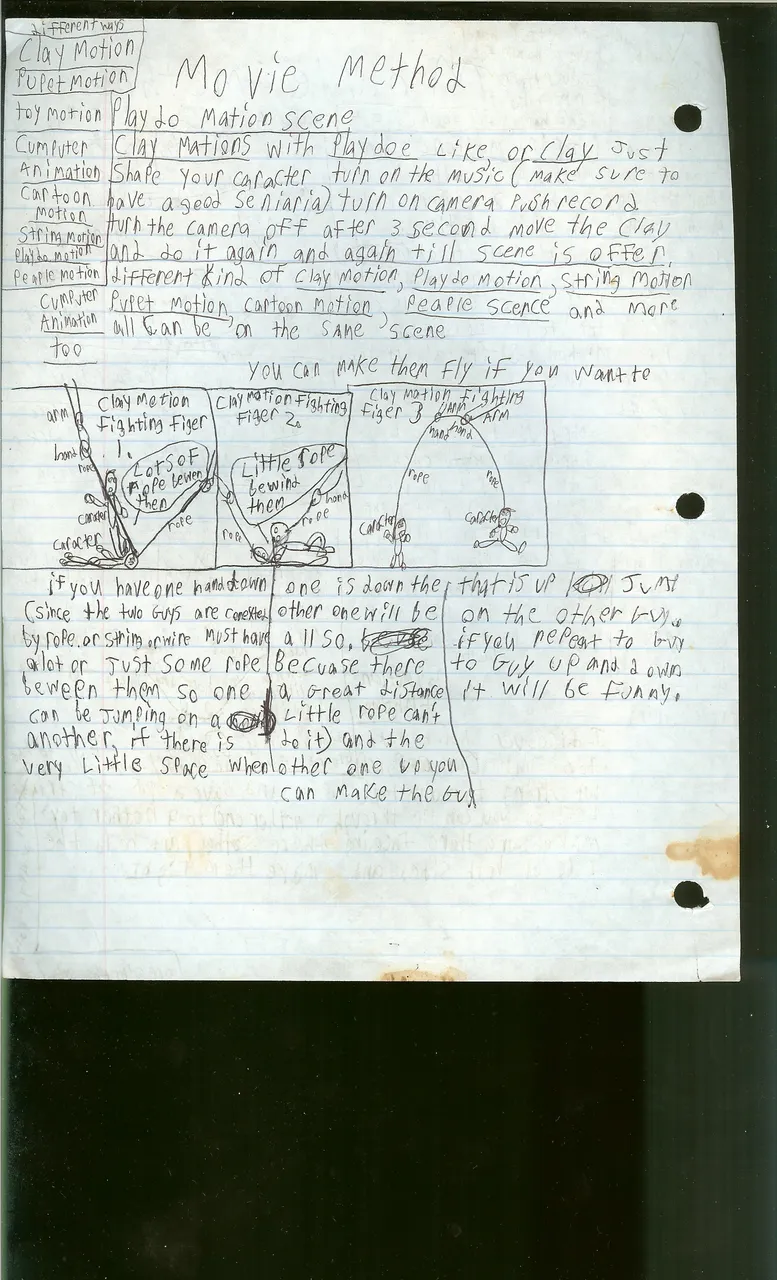 Movie Method
different ways
Clay Motion
Pupet Motion
toy motion
Cumputer
Animation
Cartoon
motion
String Motion
Playdo motion
Peaple motion
Cumputer
Animation
too
Playdo Mation scene
Clay Mations with Playdoe Like, or Clay Just
Shape your caracter turn on the music (make sure to
have a good Seniaria) turn on camera Push record
turn the camera off after 3 second move the Clay
and do it again and again till scene is offer.
different kind of Clay motion, Playdo Motion, String Motion
Pupet Motion, cartoon motion, Peaple scence and more
all can be on the same scene
you can make them fly if you want to
Clay Motion
Fighting Figer
1.
arm
hand
rope
Lots of
rope bewen
then
caracter
caracter
rope
Clay Motion Fighting
Figer 2.
Little rope
bewind
them
hand
rope
rope
Clay Motion Fighting
Figer 3
ARM
ARM
hand
hand
rope
rope
caracter
caracter
if you have one hand down
(since the two Guys are conexted
by rope or string or wire must have
alot or Just some rope
beween them so one
can be Jumping on a
another, if there is
very Little Space when
one is down the
other one will be
all so,
Becuase there
a Great distance
Little rope can't
do it) and the
other one up you
can make the Guy
that is up Jump
on the other Guy.
if you repeat to Guy
to Guy up and down
it will be funny.